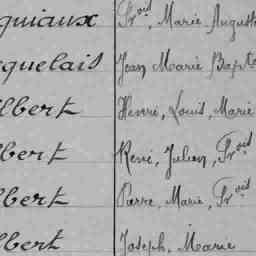 quiaux Fr^ois, Marie Auguste
quelais Jean Marie Bapt
lbert Henri, Louis, Marie
bert René, Julien, Fr^ois
bert Pierre, Marie, Fr^ois
bert Joseph, Marie